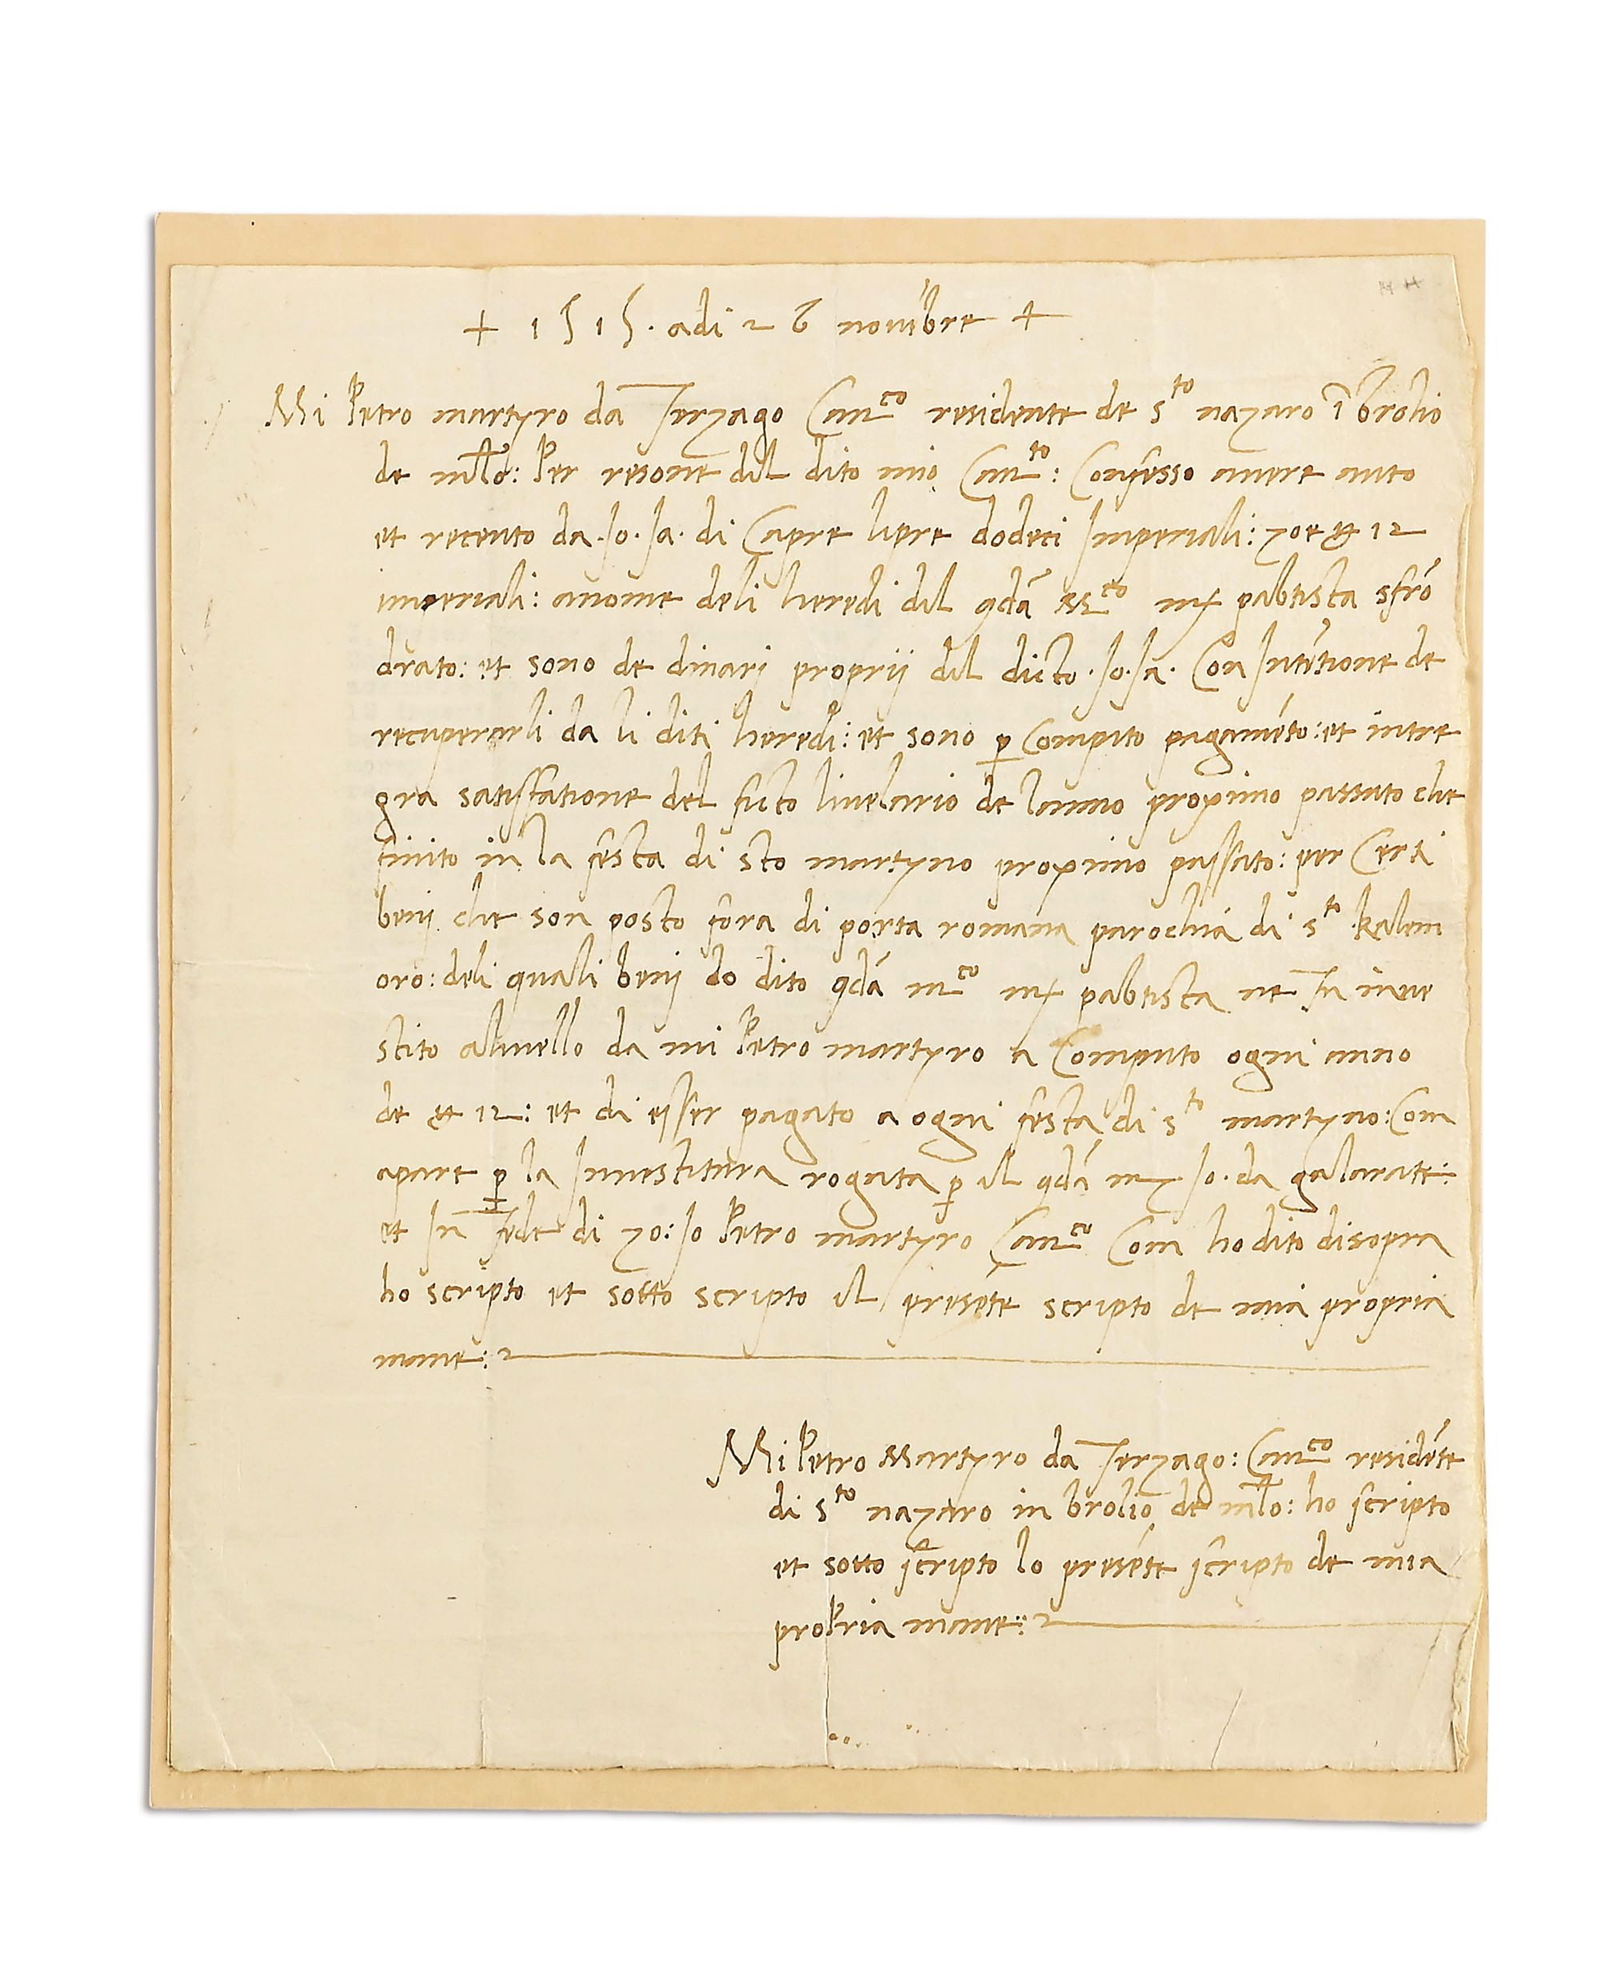 + 1515. adi 26 novẽbre +
Mi Petro martyro da Terzago Can^co residente de s^to nazaro ĩ brolio
de mlo: Per resone dil dito mio Can^to: Confesso avere auto
et receuto da .Jo.Ja. di Capre livre dodeci Imperiali: zoe 12
imperiali: anome deli heredi dil qdã M^co pabtista sfrõ
drato: et sono de dinari proprij dil dicto .Jo.Ja. Con Intẽtione de
recuperarli da li diti heredi: et sono p Compito pagamẽto: et inte
gra satisfatione del ficto livelario de lanno proximo passato che
finito in la festa di sto martyno proximo passato: per Certi
benij che son posto fora di porta romana parochia di s^to kalem
oro: deli quali benij do dito qdã m^co pabtista ne fu inve
stito alivello da mi Petro martyro a Computo ogni anno
de 12: et di esser pagato a ogni festa di s^to martyno: Com
apare p la Investitura rogata p il qdã Jo. da galarate:
et In fede di zo: Jo Petro martyro Can^co Com ho dito disopra
ho scripto et sotto scripto il presẽte scripto de mia propria
mane:
Mi Petro Martyro da Terzago: Can^co residẽte
di s^to nazaro in brolio de mlo: ho scripto
et sotto scripto lo presẽte scripto de mia
propria mane: